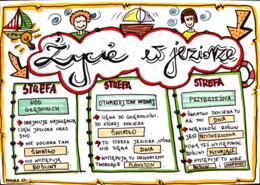 Życie w jeziorze
STREFA
WÓD
GŁĘBOKICH
OBEJMUJE NAJGŁĘBSZĄ
CZĘŚĆ JEZIORA ORAZ
DNO.
NIE DOCIERA TAM
ŚWIATŁO
NIE WYSTĘPUJĄ
ROŚLINY
STREFA
OTWARTEJ TONI WODNEJ
SIĘGA DO GŁĘBOKOŚCI,
DO KTÓREJ DOCIERA
ŚWIATŁO
TO STREFA JEZIORA, KTÓRA
DNA
WYSTĘPUJĄ TU ORGANIZMY
TWORZĄCE PLANKTON
STREFA
PRZYBRZEŻNA
ŚWIATŁO DOCIERA TU
AŻ DO DNA
WIĘKSZOŚĆ ROŚLIN
JEST
MOGĄ TEŻ WYSTĘPOWAĆ
ROŚLINY
WYSTĘPUJE TU WIELE